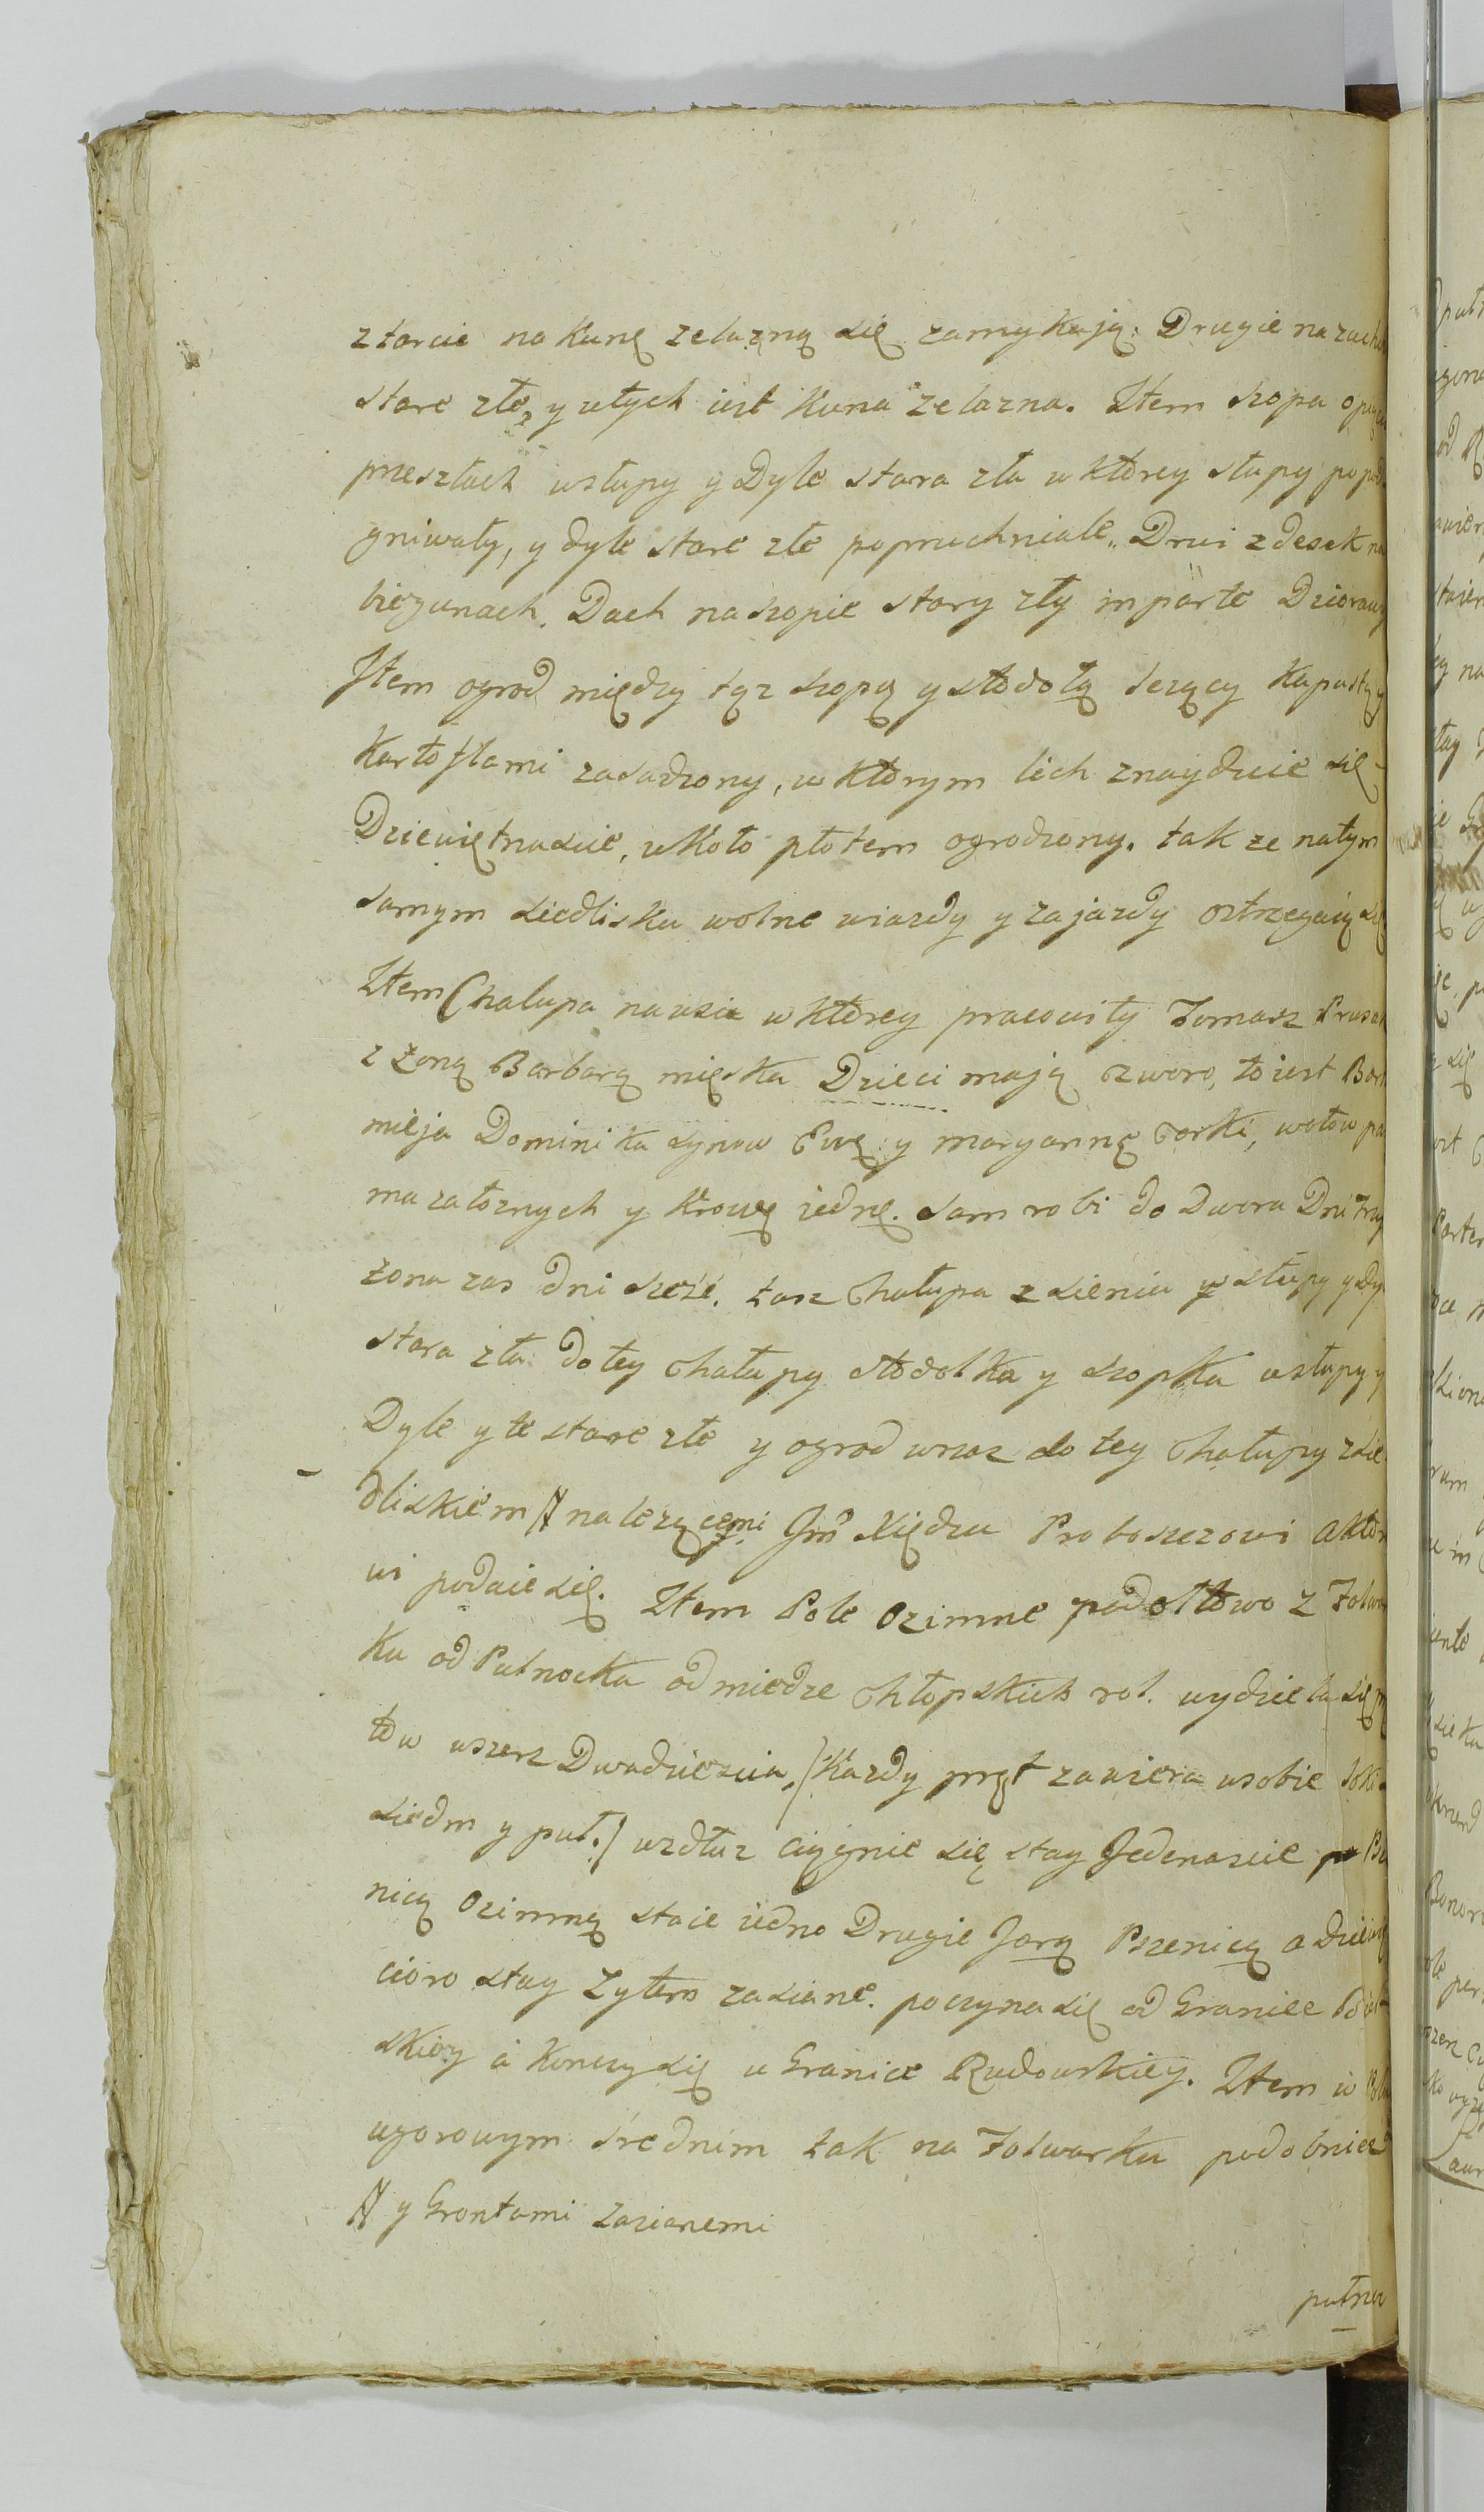 ztarcie na Kunę zelazną się zamykają. Drugie na zach
stare złe, y utych iest Kuna zelazna. Item szopa o
przesztach wsłupy y Dyle stara zła w ktorey słupy popod
gniwały, y dyle stare złe popruchniałe. Drwi z desek na
biegunach. Dach na szopie stary zły in parte Dziorawy
Item ogrod między tąz szopą y stodołą lezący Kapustą y
Kartoflami zasadzony, w ktorym lich znayduie się
Dziewiętnascie, wkoło płotem ogrodzony. tak ze na tym
samym siedlisku wolne wiazdy y zajazdy ostrzegaią się
Item Chalupa na wsi w ktorey pracowity Tomasz Prusak
z Zoną Barbarą mięska Dzieci mają czworo, to iest Bart
mieja Dominika synow Ewę y Maryannę corki, wołow pa
ma załoznych y Krowę iednę. Sam robi do Dwora Dni trzy
zona zas dni sześć. taz Chałupa z sienią w słupy y Dy
stara zła do tey Chałupy stodołka y szopka wsłupy y
Dyle y te stare złe y ogrod wraz do tey Chałupy z sie
dliskiem # nalezącemi Jmć Xiędzu Proboszczowi Aktor
wi podaie się. Item Pole Ozimne z Folwar
Ku od Pułnocka od miedze Chłopskich rol. wydziela się
tow wszerz Dwadziescia, /Kazdy pręt zawiera wsobie łokci
siedm y puł./ wzdłuz ciągnie się stay Jedenascie Psze
nicą Ozimną staie iedno Drugie Jarą Pszenicą a dziewię
cioro stay Zytem zasiane. poczyna się od Granice
skiey a Konczy się u Granice Rudowskiey. Item w Polu
ugorowym srednim tak na Folwarku podobniez
# y Grontami zasianemi